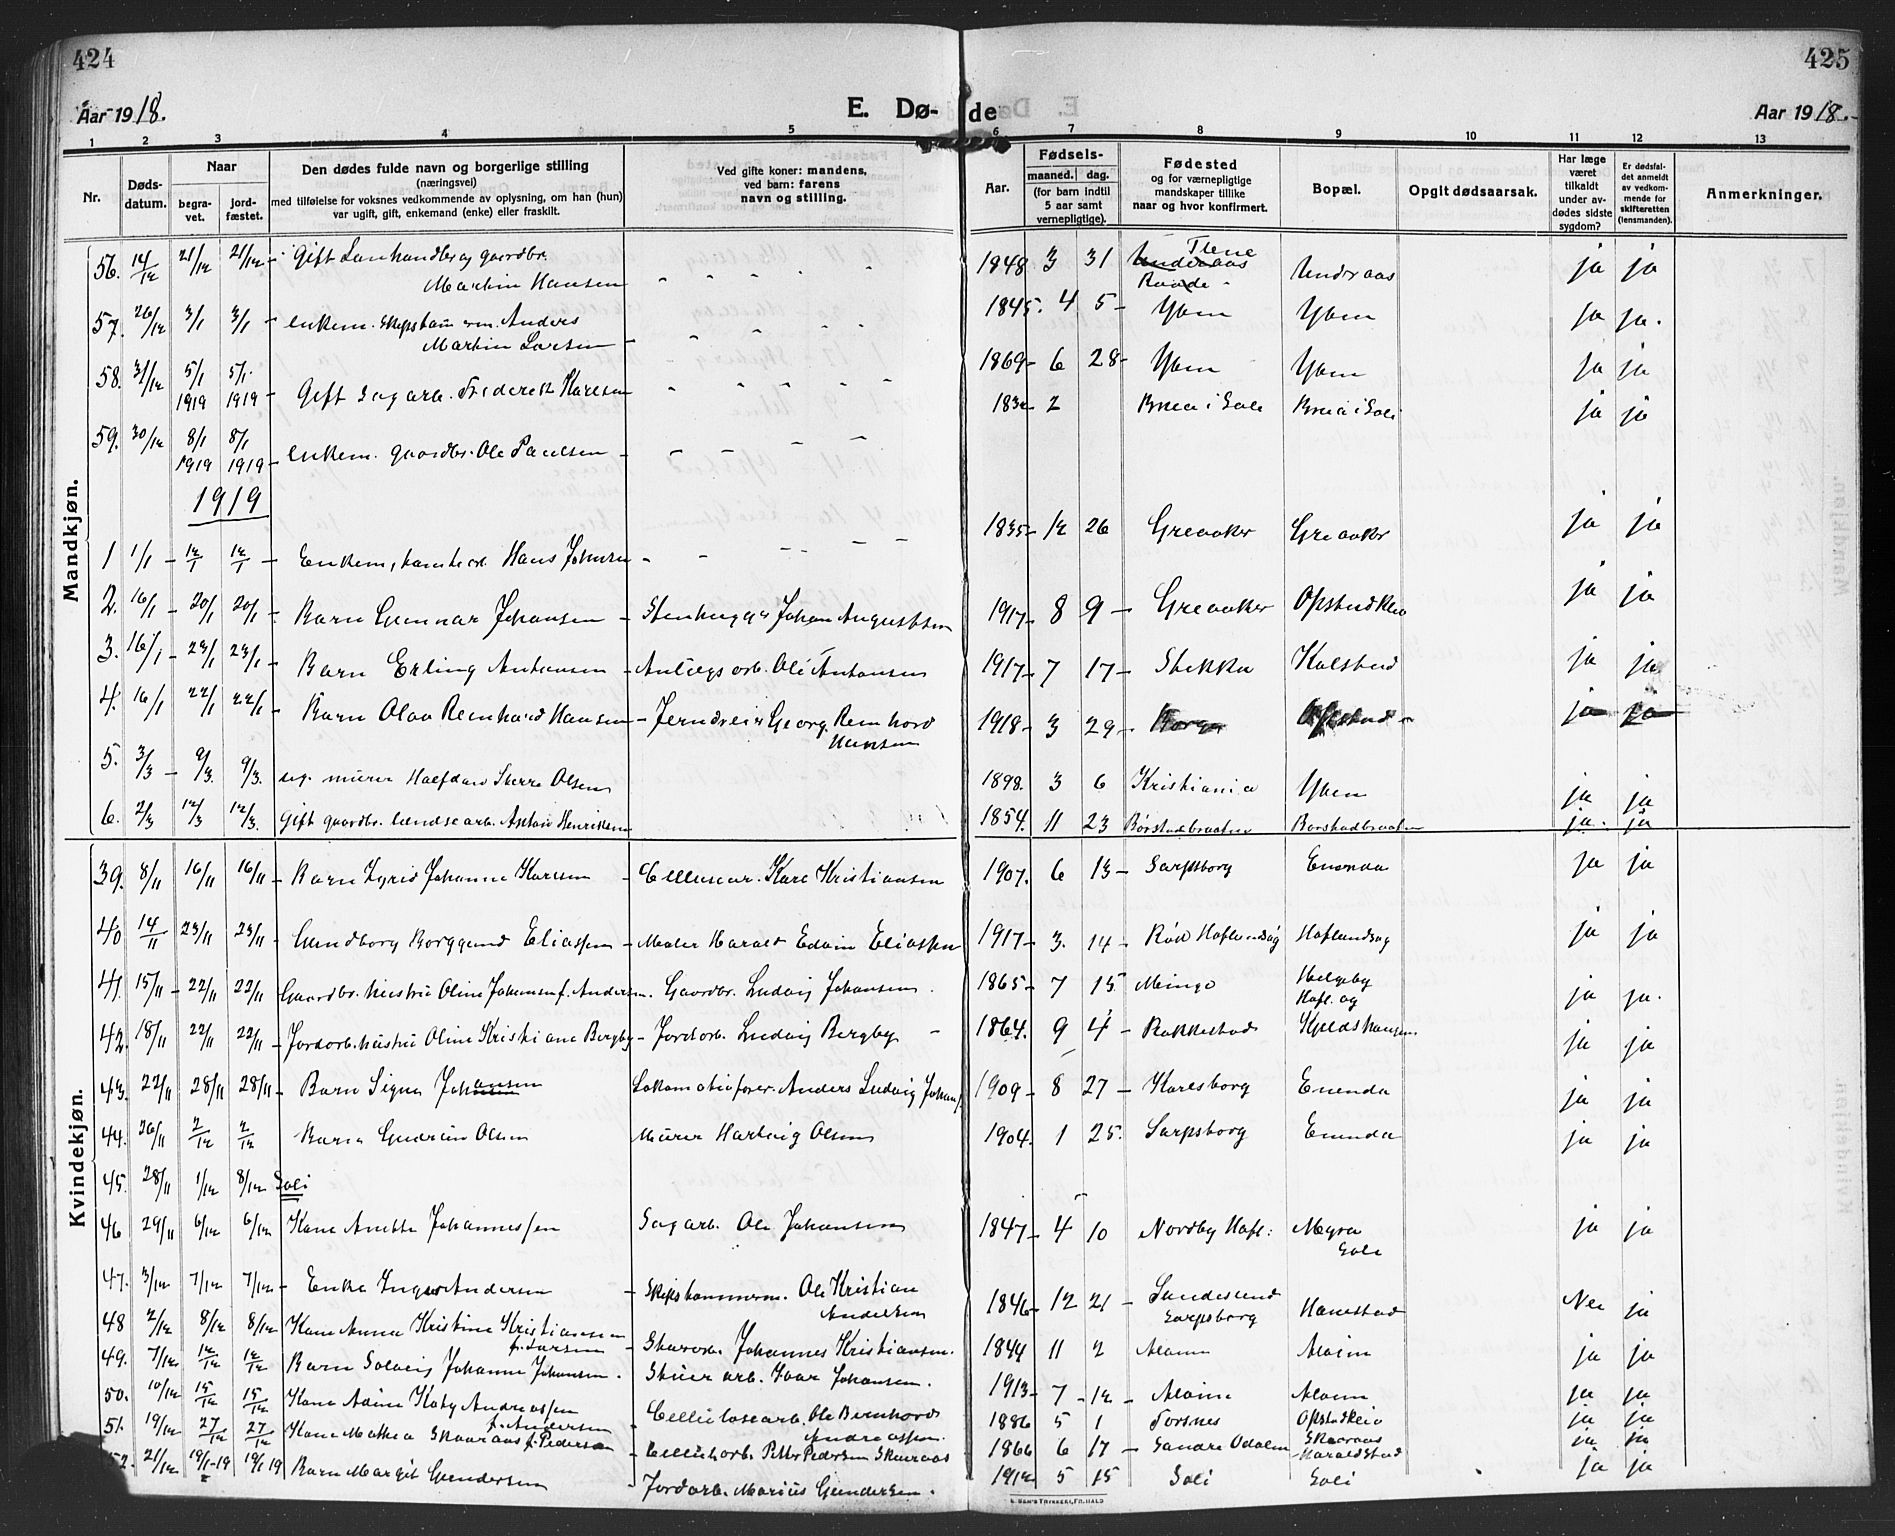 424
425
Aar 1918.
E. Dø-
de
Aar 1918.
1 2 3 4 5 6 7 8 9 10 11 12 13
Nr.
Døds-
datum.
Naar
begra-
vet.
jord-
fæstet.
Den dødes fulde navn og borgerlige stilling
(næringsvei)
med tilføielse for voksnes vedkommende av oplysning, om han (hun)
var ugift, gift, enkemand (enke) eller fraskilt.
Ved gifte koner: mandens,
ved barn: farens
navn og stilling.
Aar.
Fødsels-
maaned. dag.
(for barn indtil
5 aar samt
vernepligtige).
Fødested
og for værnepligtige
mandskaper tillike
naar og hvor konfirmert.
Bopæl.
Opgit dødsaarsak.
Har læge
været
tilkaldt
under av-
dødes sidste
sygdom?
Er dødsfal-
det anmeldt
av vedkom-
mende for
skifteretten
(lensmanden).
Anmerkninger.
Mandkjøn.
56. 14/12 21/12 21/12 Gift Landhandler og gaardbr. Martin Hansen 1848 3 31 Tune Undraas ja ja
57. 26/12 3/1 3/1 Enkem. Skipstømmerm. Anders Martin Larsen 1845. 4 5 Yven Yven ja ja.
58. 31/12 5/1 1919 5/1 1919 Gift Sagarb. Frederik Karlsen 1869 6 28 Yven Yven ja ja
59. 30/12 8/1 1919 8/1 1919 Enkem. gaardbr. Ole Paulsen 2 Brea i Soli Brea i Soli ja ja
1919
1 1/1 12/1 12/1 Enkem, Hans Johnsen 1835 12 26 Greaaker Greaaker ja ja
2. 16/1 20/1 20/1 Barn Gunnar Johansen Stenhugger Johan Augustsen 1917 8 9 Greaaker Opstadkleiv ja ja
3. 16/1 23/1 23/1 Barn Erling Antonsen Anlegsarb. Ole Antonsen 1917 7 17 Stikka Kalstad ja ja
4. 16/1 22/1 22/1 Barn Olav Reinhard Hansen Jerndreier Georg Reinhard Hansen 1918 3 29 Borge Opstad ja ja
5. 3/3 9/3. 9/3. ug. murer Halfdan Sverre Olsen 1898. 3 6 Kristiania Yven ja ja
6. 2/3 12/3 12/3. Gift gaardbr. lendsearb. Anton Henriksen 1854. 11 23 Borstadbraaten Borstadbraaten ja. ja
Kvindekjøn.
39. 8/11 16/11 16/11 Barn Johanne Karlsen Cellulosear. Karl Kristiansen 1907. 6 13 Sarpsborg Enenda ja ja
40 14/11 23/11 23/11 Gundborg Borggund Eliassen Maler Harald Edvin Eliassen 1917 3. 14 Rød Haflundsøy Haflundsøy ja ja
41. 15/11 22/11 22/11 Gaardbr. hustru Oline Johansen f. Andersen. Gaardbr. Ludvig Johansen 1865 7 15. Mingo Helgeby Hafl. og ja ja.
42. 18/11 22/11 22/11 Jordarb. hustru Oline Kristiane Bergby Jordarb. Ludvig Bergby 1864. 9 4 Rakkestad ja ja
43. 22/11 28/11 28/11 Barn Signe Johansen Lokomotivfører. Anders Ludvig Johans. 1909 8 27 Karlsborg Enenda ja ja
44. 26/11 2/12 2/12 Barn Gudrun Olsen Murer Hartvig Olsen 1904. 1 25. Sarpsborg Enenda ja ja
45. 28/11 1/12 8/12 Soli
46 29/11 6/12 6/12 Kone Anette Johannessen Sagarb. Ole Johansen 1847 4 10 Nordby Hafl: Myra Soli ja ja
47. 3/12 7/12 7/12 Enke Inger Andersen Skipstømmerm. Ole Kristian Andersen 1846 12 21 Sandesund Sarpsborg Hanestad Nei ja
48 2/12 8/12 8/12 Kone Anna Kristine Kristiansen f. Larsen Johannes Kristiansen. 1844 11 2 Alvim Alvim ja ja
49. 7/12 12/12 12/12 Barn Solveig Johanne Johansen. Skurarb. Ivar Johansen. 1913 7 12 Alvim Alvim ja ja
50. 10/12 15/12 15/12 Kone Katy Andreassen f. Andersen Cellulosearb. Ole Bernhard Andreassen. 1886 5 1 Torsnes Opstadkleiv ja ja
51. 19/12 27/12 27/12 Kone Mathea Skaaraas f. Pedersen Cellulosarb. Petter Pedersen Skaaraas 1866 6 17 Søndre Odalen Skaaraas Haraldstad ja ja
52. 21/12 19/1-19 19/1 19 Barn Margit Gundersen Jordarb. Marius Gundersen. 1912 5 15 Soli Soli ja ja